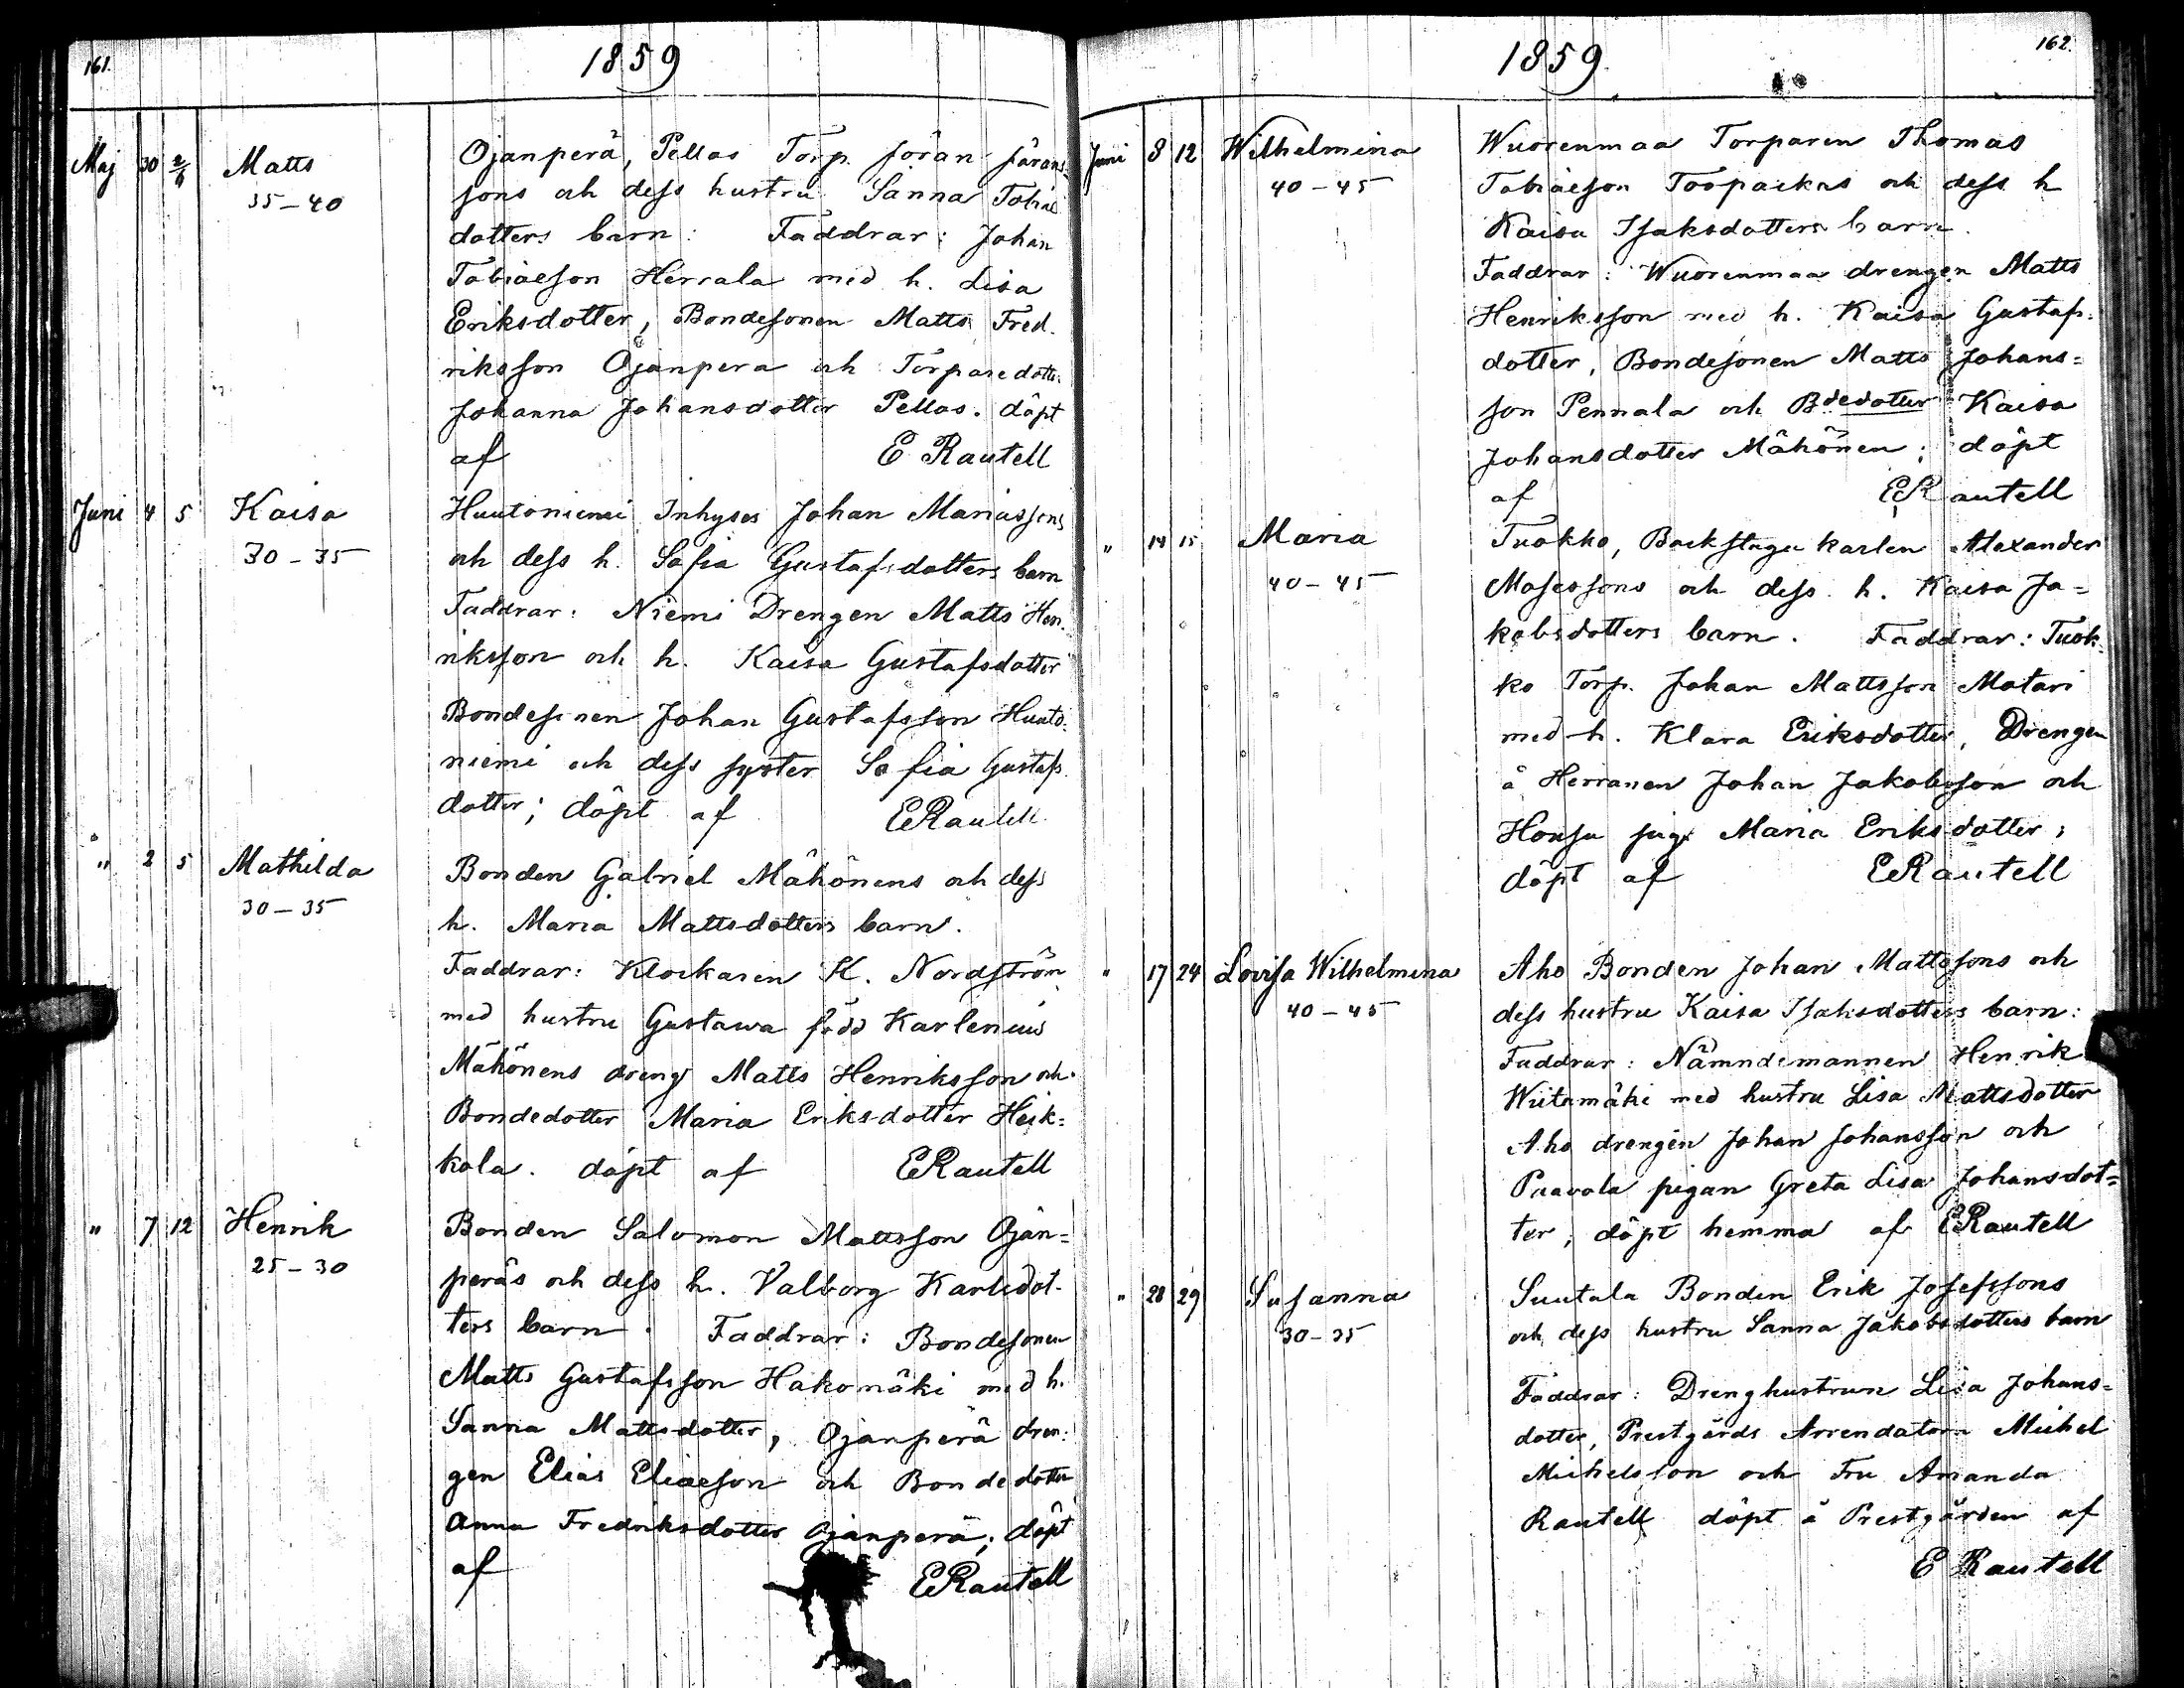 161.
1859
Maj 30 2/6 Matts
35–40
Ojanperä, Pellas Torp. Jöran Jörans-
sons och dess hustru Sanna Tobiæ
dotters barn: Faddrar: Johan
Tobiaeson Herrala med h. Lisa
Eriksdotter, Bondesonen Matts Fred-
riksson Ojanpera och Torparedotter
Johanna Johansdotter Pellas. döpt
af E Rautell
Juni 4 5 Kaisa
30–35
Huutoniemi Inhyses Johan Mariassons
och dess h. Sofia Gustafsdotters barn
Faddrar: Niemi Drengen Matts Hen-
riksson och h. Kaisa Gustafsdotter
Bondesonen Johan Gustafsson Huuto-
niemi och dess syster Sofia Gustafs
dotter; döpt af ERautell
" 2 5 Mathilda
30–35
Bonden Gabriel Mähönens och dess
h. Maria Mattsdotters barn.
Faddrar: Klockaren K. Nordström
med hustru Gustawa född Karlenius
Mähönens dreng Matts Henriksson och
Bondedotter Maria Eriksdotter Heik=
kola. döpt af ERautell
" 7 12 Henrik
25–30
Bonden Salomon Mattsson Ojan=
peräs och dess h. Valborg Karlsdot-
ters barn. Faddrar: Bondesonen
Matts Gustafsson Hakomäki med h.
Sanna Mattsdotter, Ojanperä dren-
gen Elias Eliaeson och Bondedotter
Anna Fredriksdotter Ojanperä; döpt
af ERautell
162.
1859.
Juni 8 12 Wilhelmina
40–45
Wuorenmaa Torparen Thomas
Tobiaeson Toopackas och dess h
Kaisa Isaksdotters barn.
Faddrar: Wuorenmaa drengen Matts
Henriksson med h. Kaisa Gustafs-
dotter, Bondesonen Matts Johans=
son Pennala och Bdedotter Kaisa
Johansdotter Mähönen; döpt
af ERautell
" 14 15 Maria
40–45
Tuokko, Backstugu karlen Alexander
Mosessons och dess h. Kaisa Ja=
kobsdotters barn. Faddrar: Tuok-
ko Torp. Johan Mattsson Matari
med h. Klara Eriksdotter, Drengen
å Herranen Johan Jakobsson och
Maria Eriksdotter;
döpt af ERautell
" 17 24 Lovisa Wilhelmina
40–45
Aho Bonden Johan Mattssons och
dess hustru Kaisa Isaksdotters barn:
Faddrar: Nämndemannen Henrik
Wiitamäki med hustru Lisa Mattsdotter
Aho drengen Johan Johansson och
Puavola pigan Greta Lisa Johansdot=
ter; döpt hemma af ERautell
" 28 29 Susanna
30–35
Suutala Bonden Erik Josefssons
och dess hustru Sanna Jakobsdotters barn
Faddrar: Drenghustrun Lisa Johans=
dotter, Prestgårds Arrendatorn Michel
Michelsson och Fru Amanda
Rautell döpt å Prestgården af
E Rautell